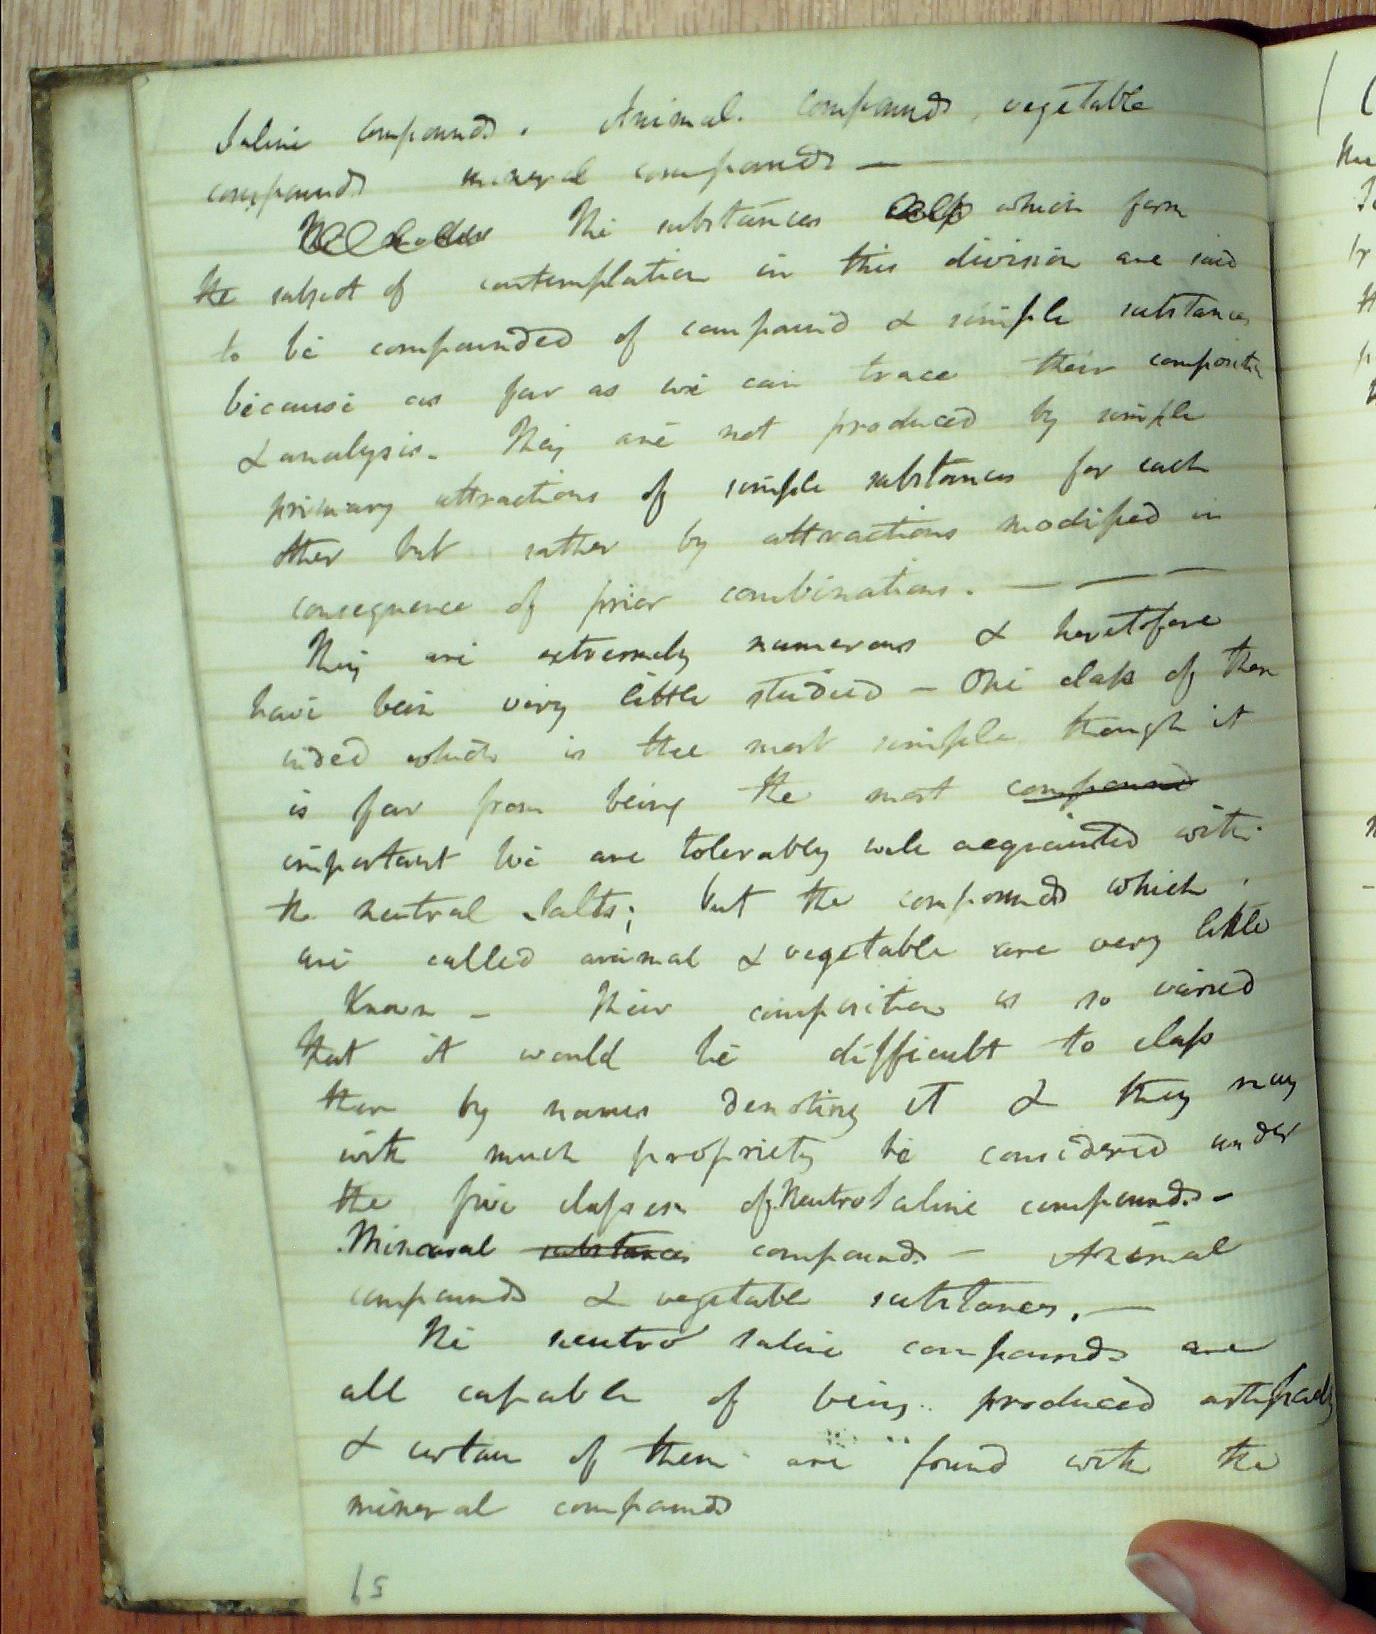 Saline compounds. Animal. compounds, vegetable
compounds mineral compounds —
The substances which form
the subject of contemplation in this division are said
to be compounded of compound & simple substances
because as far as we can trace their composition
& analysis. They are not produced by simple
primary attractions of simple substances for each
other but rather by attractions modified in
consequence of prior combinations. — — —
They are extremely numerous & heretofore
have been very little studied — One class of them
indeed which is the most simple though it
is far from being the most compound
important We are tolerably well acquainted with
the neutral salts; but the compounds which
are called animal & vegetable are very little
Known — Their composition is so varied
that it would be difficult to class
them by names denoting it & they may
with much propriety be considered under
the five classes of Neutro saline compounds —
Mineral substances compounds — Animal
compounds & vegetable substances. —
The neutro saline compounds are
all capable of being produced artificially
& certain of them are found with the
mineral compounds